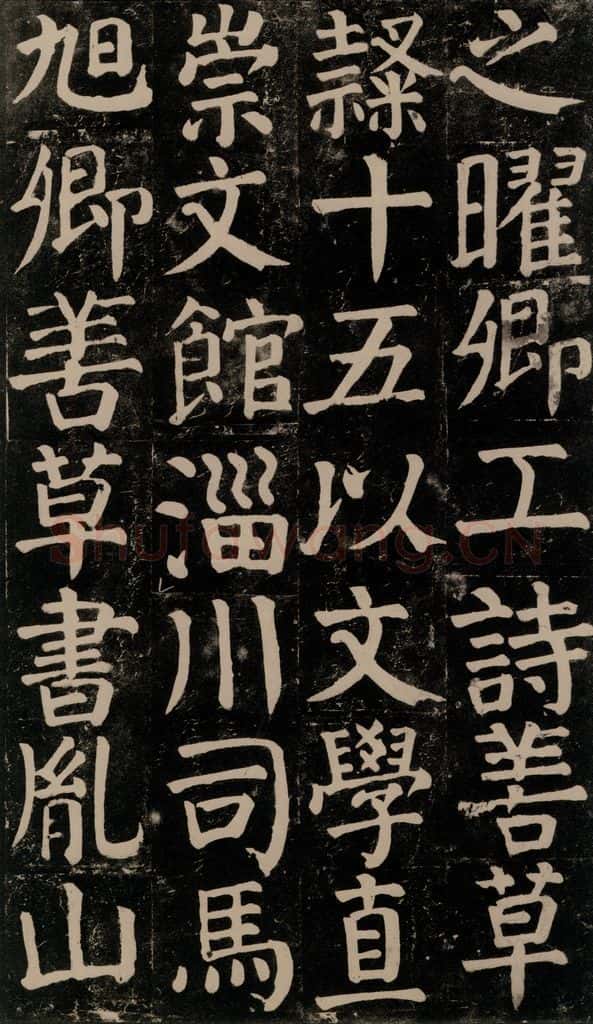 之曜卿工詩善草
隸十五以文學直
崇文館淄川司馬
旭卿善草書胤山
Shufawang.CN